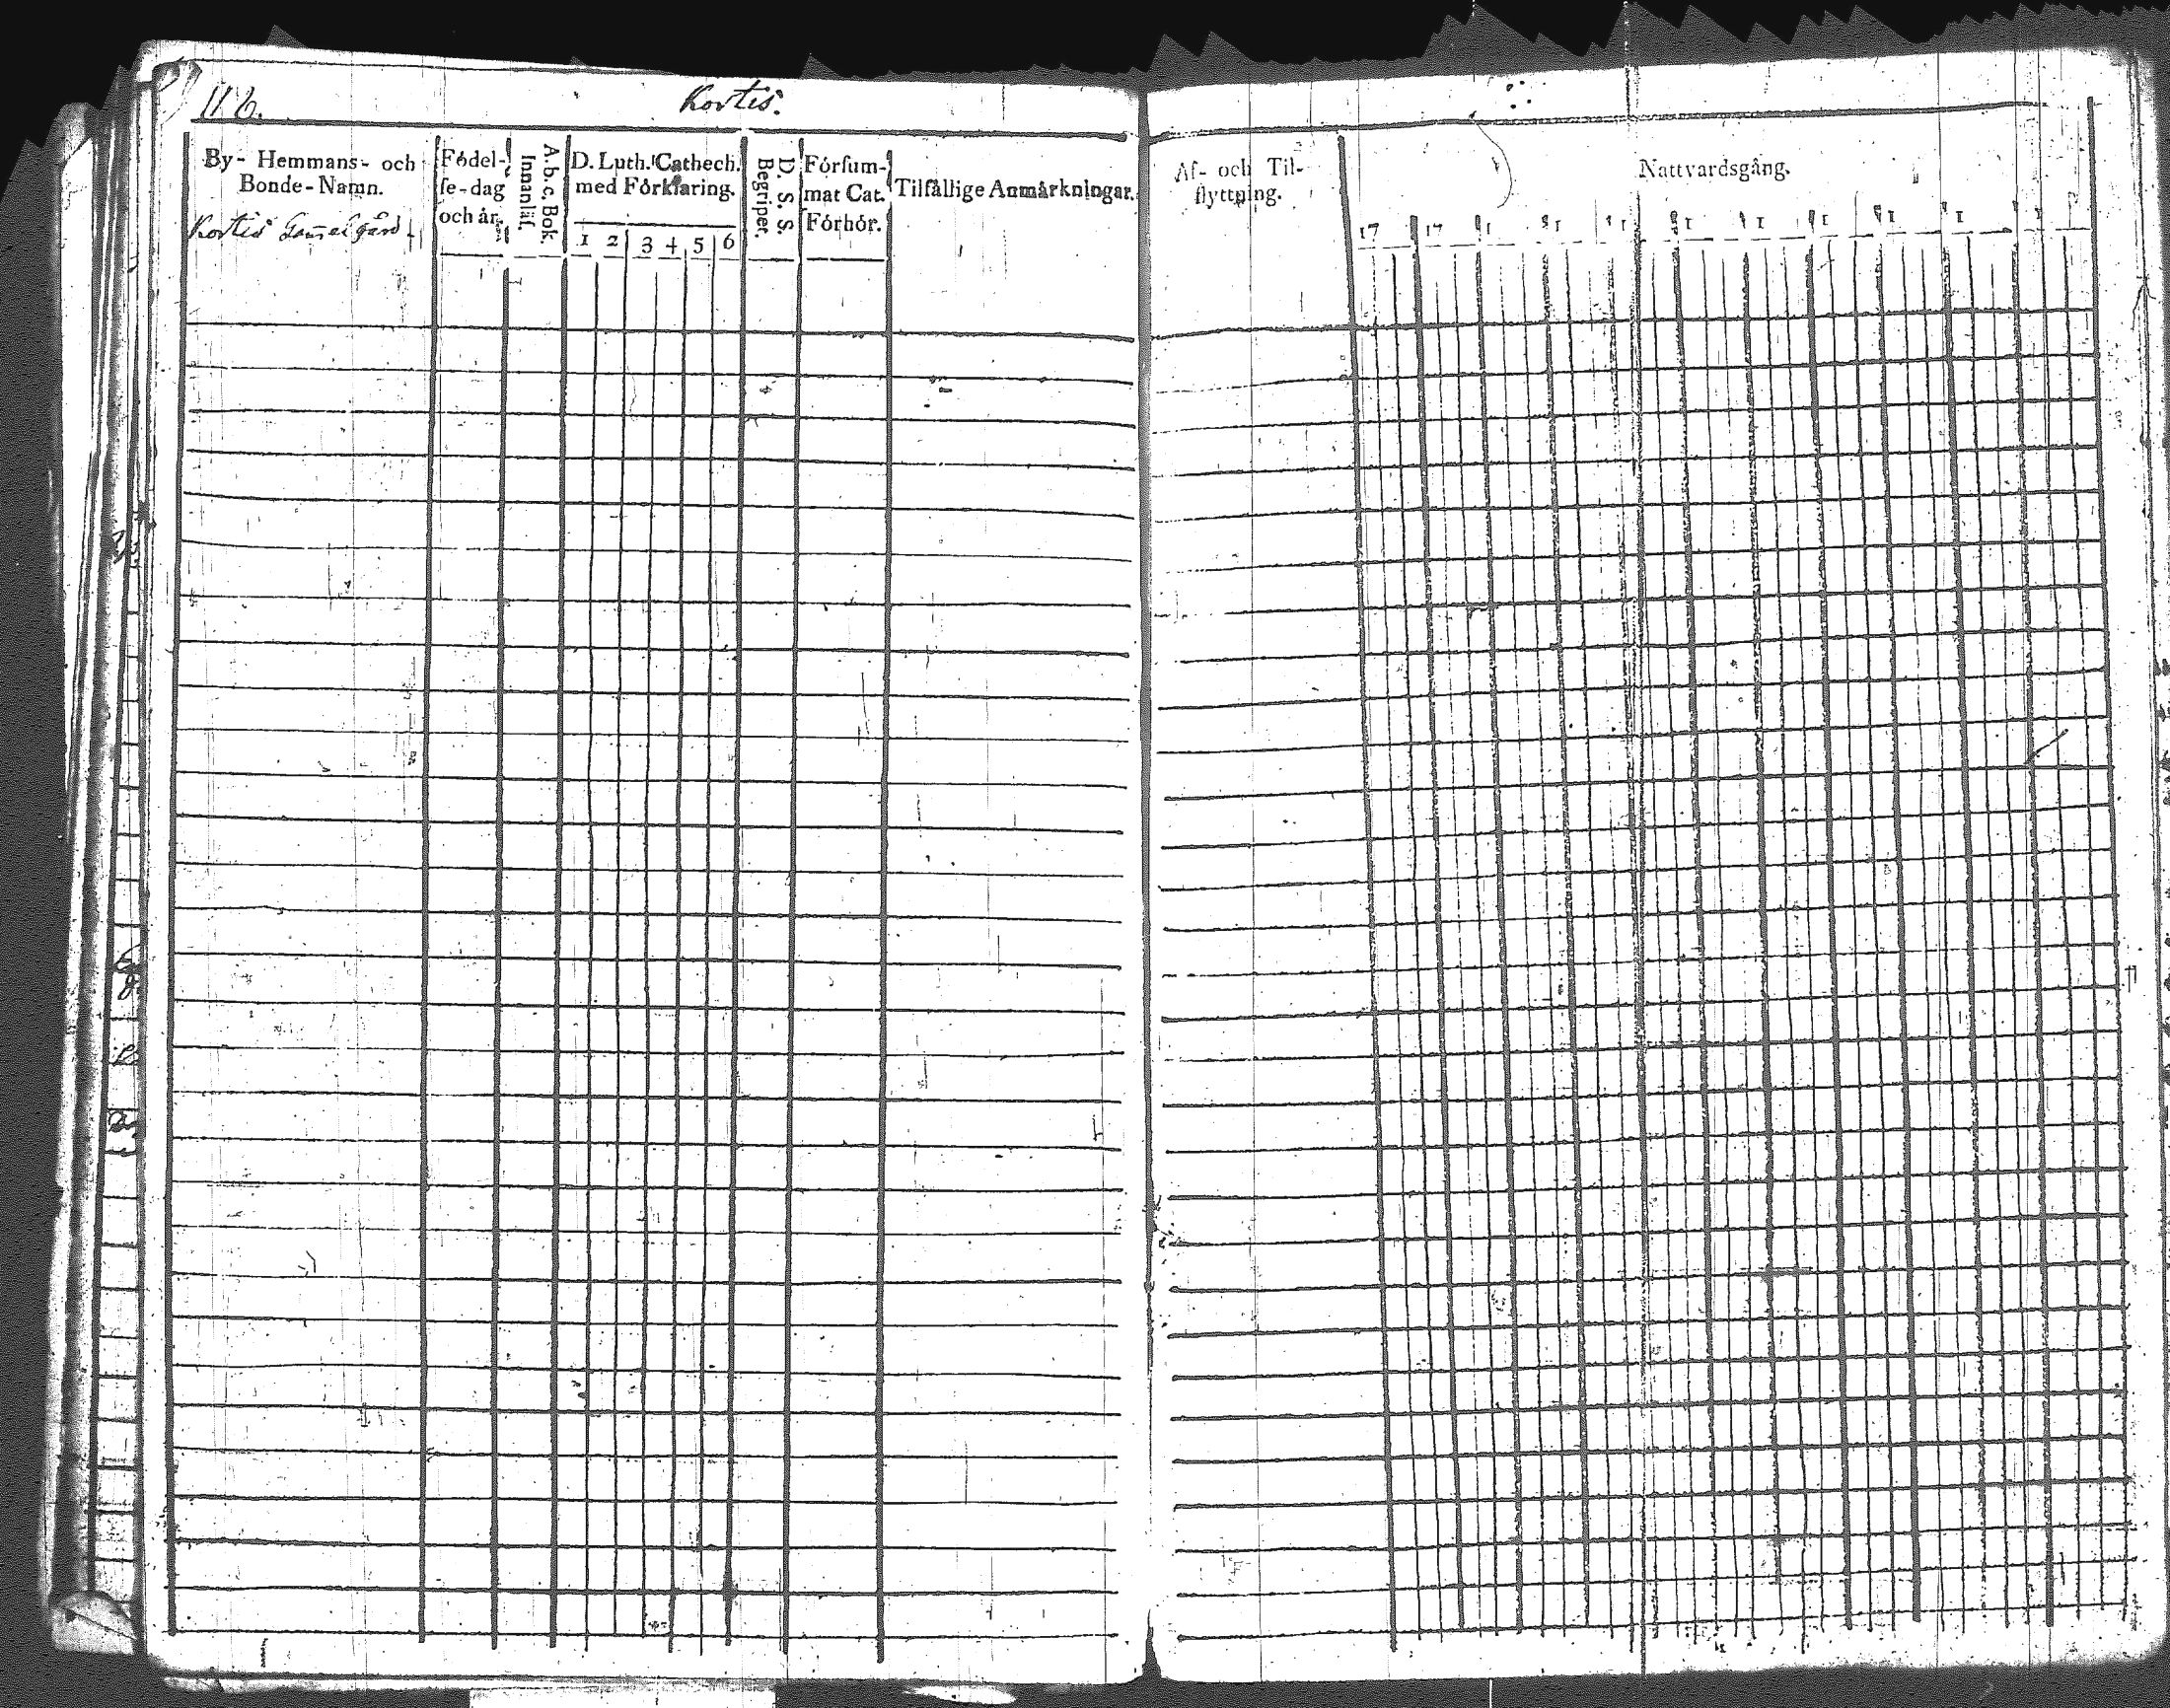 116.
Kortis.
By- Hemmans- och
Bonde-Namn.
Kortis Gam̄elgård.
Födel-
ſe-dag
och år.
A. b. c. Bok.
Innanläſ.
D. Luth. Cathech.
med Förklaring.
1 2 3 4 5 6
D. S. S.
Begriper.
Förſum-
mat Cat.
Förhör.
Tilfällige Anmärkningar.
Af- och Til-
flyttning.
Nattvardsgång.
17 17 1 1 1 1 1 1 1 1